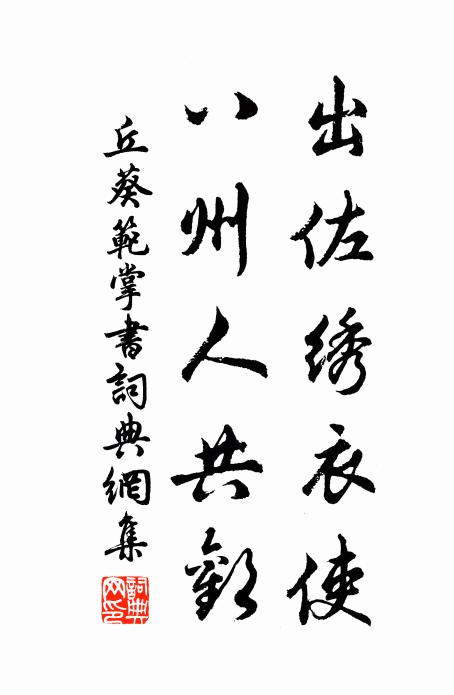 出佐绣衣使
八州人共歡
丘葵範掌書詞典網集
詞典網印